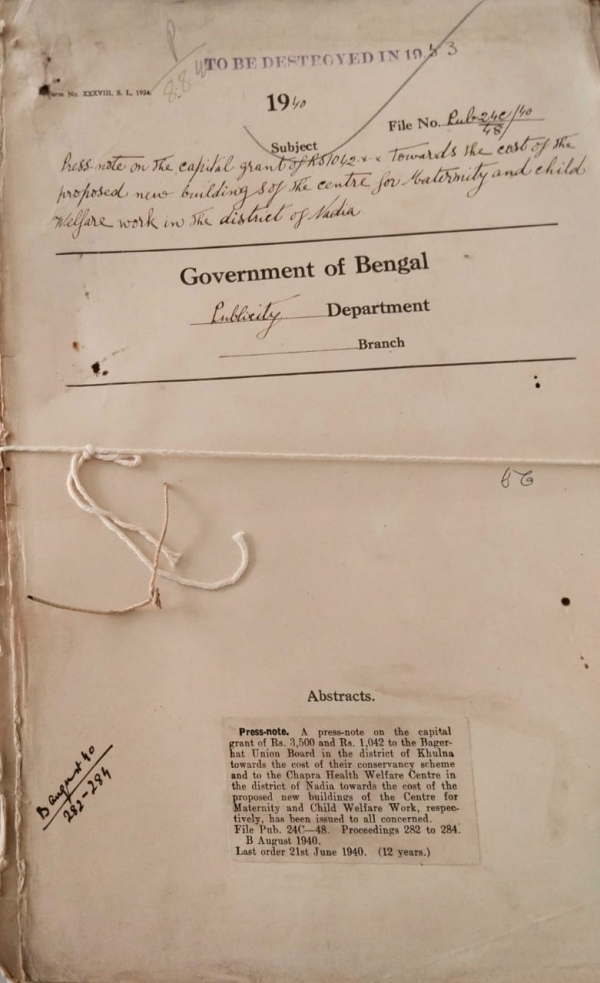 TO BE DESTROYED IN 1953
Form No. XXXVIII, S. I., 1924
1940
File No. Pub 24C/40
48
Subject
Press-note on the capital grant of Rs1042 x x Towards the cost of the
proposed new buildings of the centre for Maternity and child
Welfare work in the district of Nadia
Government of Bengal
Publicity Department
Branch
Abstracts.
Press-note. A press-note on the capital
grant of Rs. 3,500 and Rs. 1,042 to the Bager-
hat Union Board in the district of Khulna
towards the cost of their conservancy scheme
and to the Chapra Health Welfare Centre in
the district of Nadia towards the cost of the
proposed new buildings of the Centre for
Maternity and Child Welfare Work, respec-
tively, has been issued to all concerned.
File Pub. 24C—48. Proceedings 282 to 284.
B August 1940.
Last order 21st June 1940. (12 years.)
B August 40
282-284